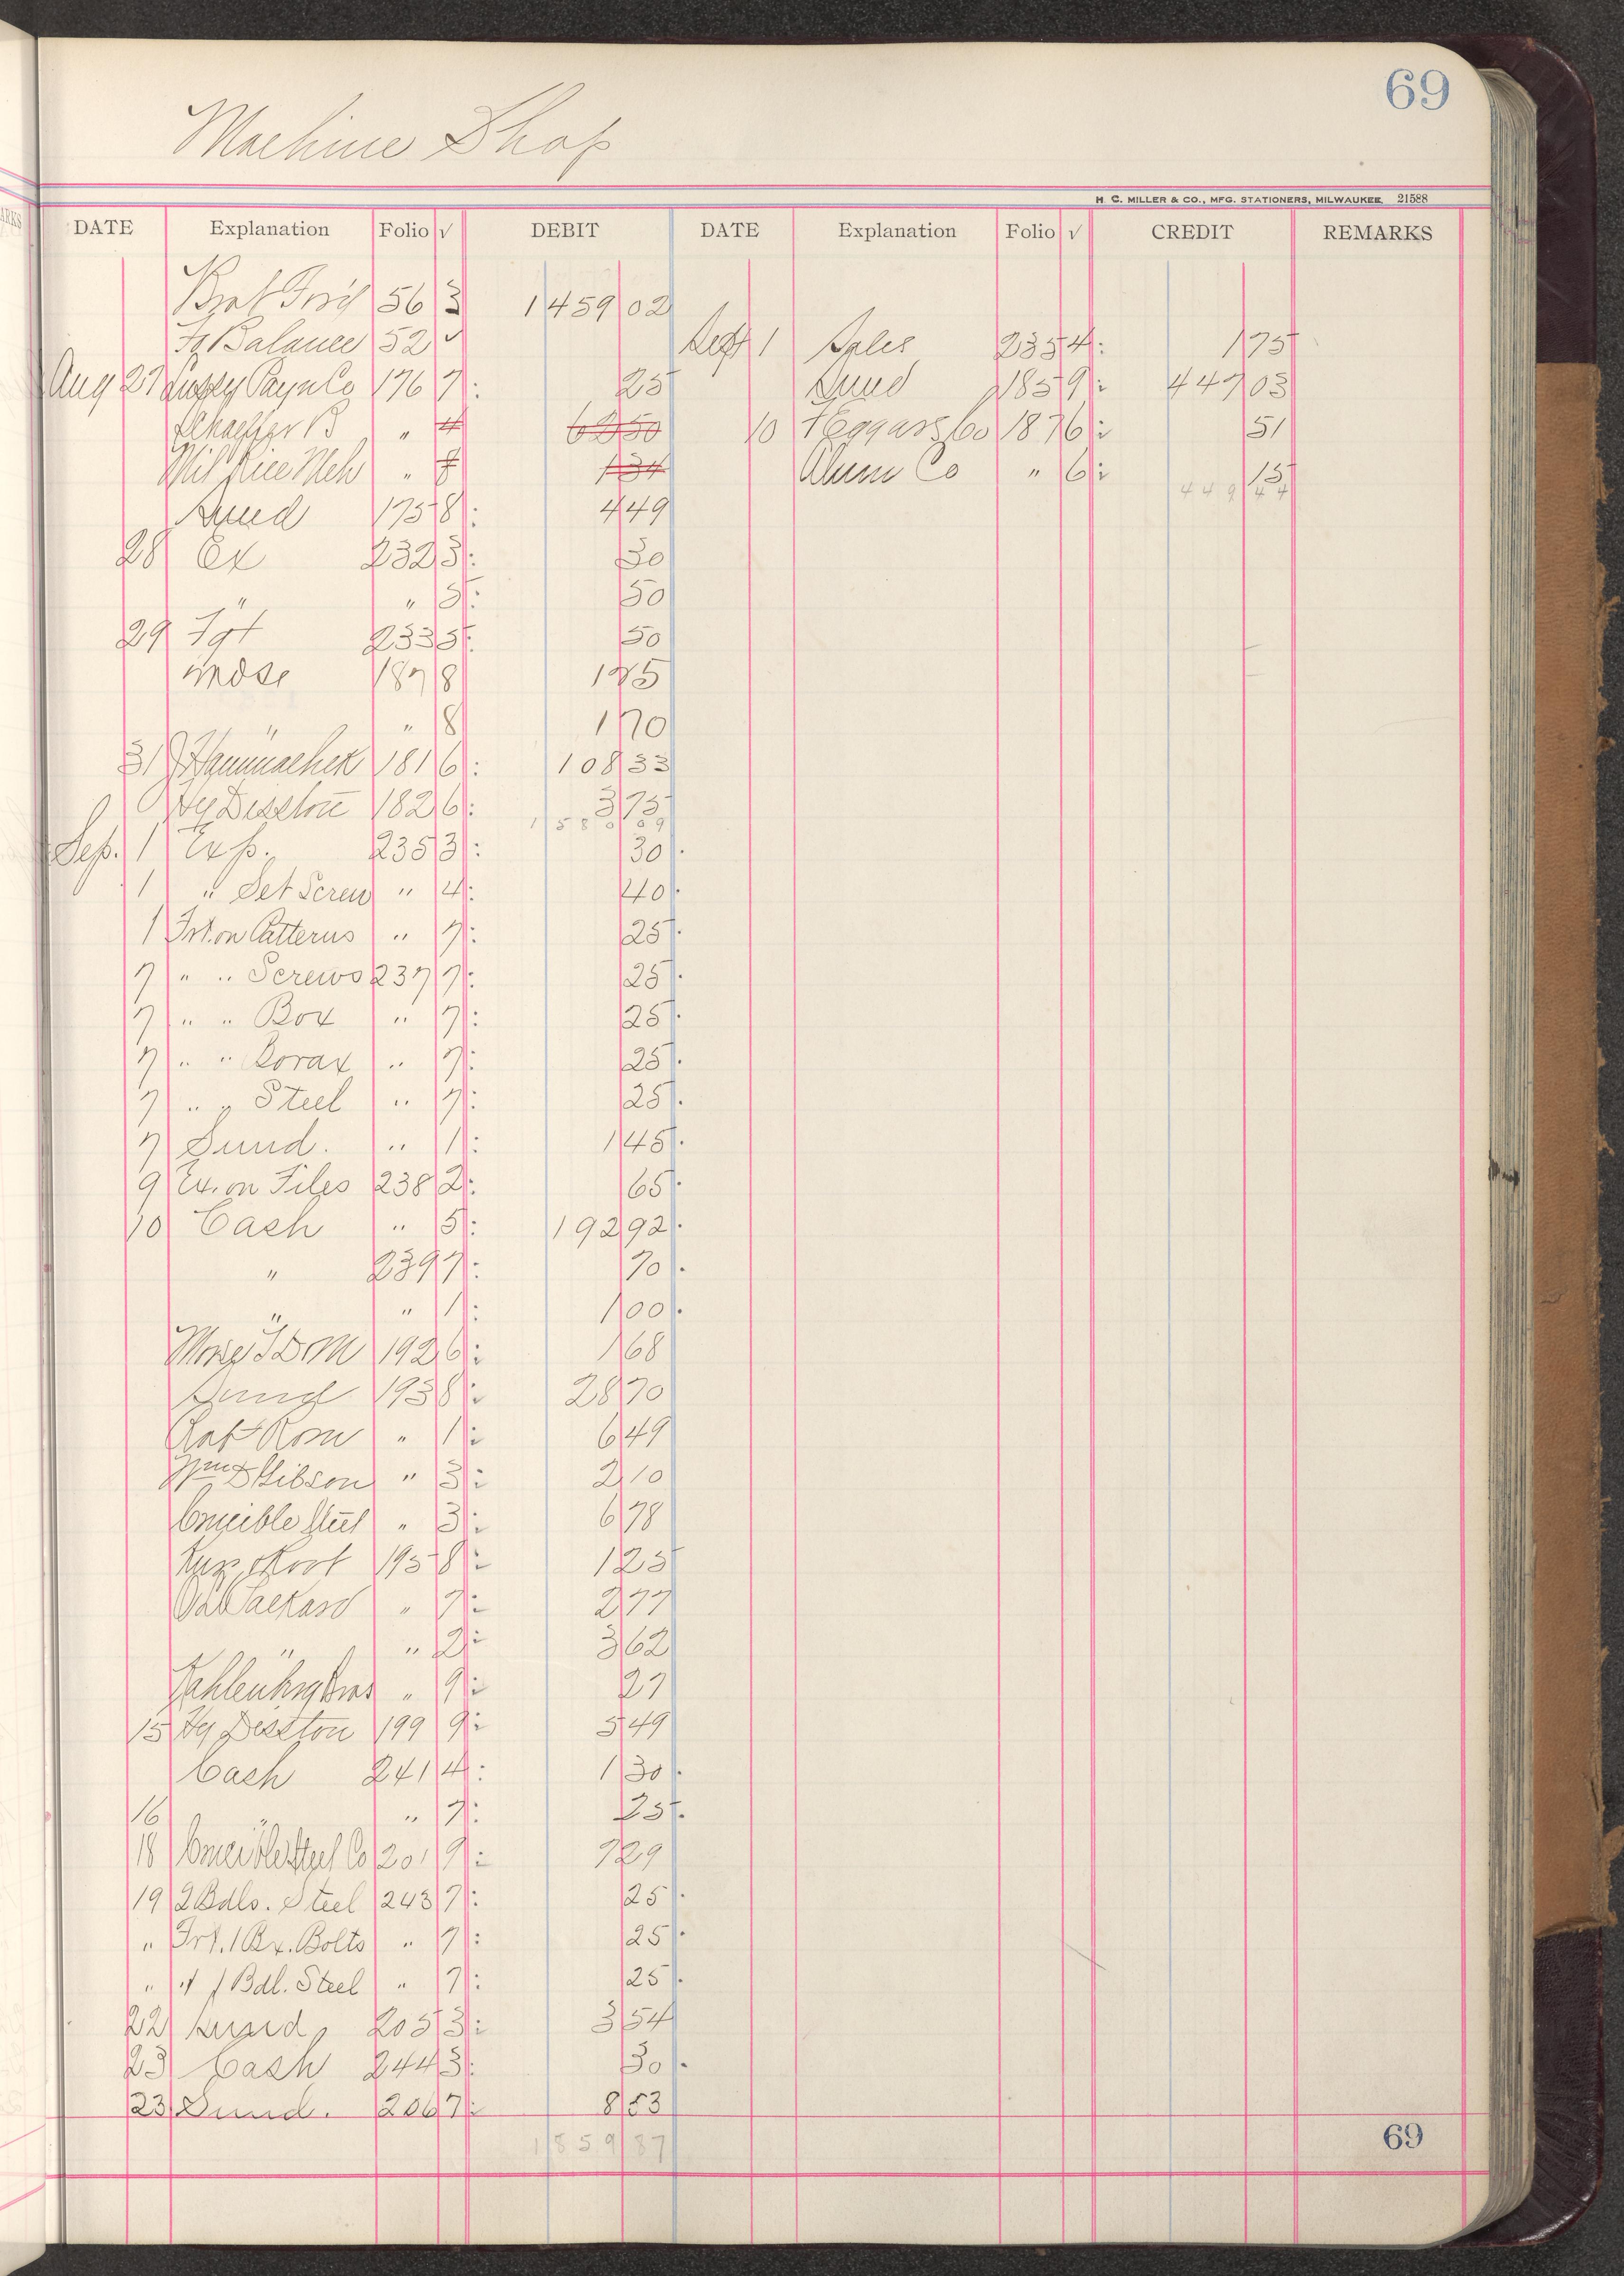 69
Machine Shop
H. C. MILLER & CO., MFG. STATIONERS, MILWAUKEE. 21588
DATE Explanation Folio √ DEBIT DATE Explanation Folio √ CREDIT REMARKS
56 3 1459 02
To Balance 52 √ Sept 1 Sales 235 4 1 75
Aug 27 176 7 25 Sund 185 9 447 03
" 4 62 50 10 187 6 51
" 7 1 34 Alum Co " 6 15
449 44
Sund 175 8 4 49
28 Ex 232 3 30
" " 5 50
29 Fgt 233 5 50
Mdse 187 8 1 75
" " 8 1 70
31 Hammacher 181 6 108 33
Hy Disston 182 6 3 75
Sep. 1 Exp. 235 3 30
1 " Set Screw " 4 40
1 Frt. on Patterns " 7 25
7 " " Screws 237 7 25
7 " " Box " 7 25
7 " " Borax " 7 25
7 " " Steel " 7 25
7 Sund. " 1 1 45
9 Ex. on Files 238 2 65
10 Cash " 5 192 92
" 239 7 70
" " 1 1 00
192 6 1 68
Sund 193 8 28 70
" 1 6 49
Wm D Gibson " 3 2 10
Crucible Steel " 3 6 78
195 8 1 25
" 7 2 77
" " 2 3 62
" 9 27
15 Hy Disston 199 9 5 49
Cash 241 4 1 30
16 " " 7 25
18 Crucible Steel Co 201 9 7 29
19 2 Bdls. Steel 243 7 25
" Frt. 1 Bx. Bolts " 7 25
" " 1 Bdl. Steel " 7 25
22 Sund. 205 3 3 54
23 Cash 244 3 30
23 Sund. 206 7 8 53
1859 87
69